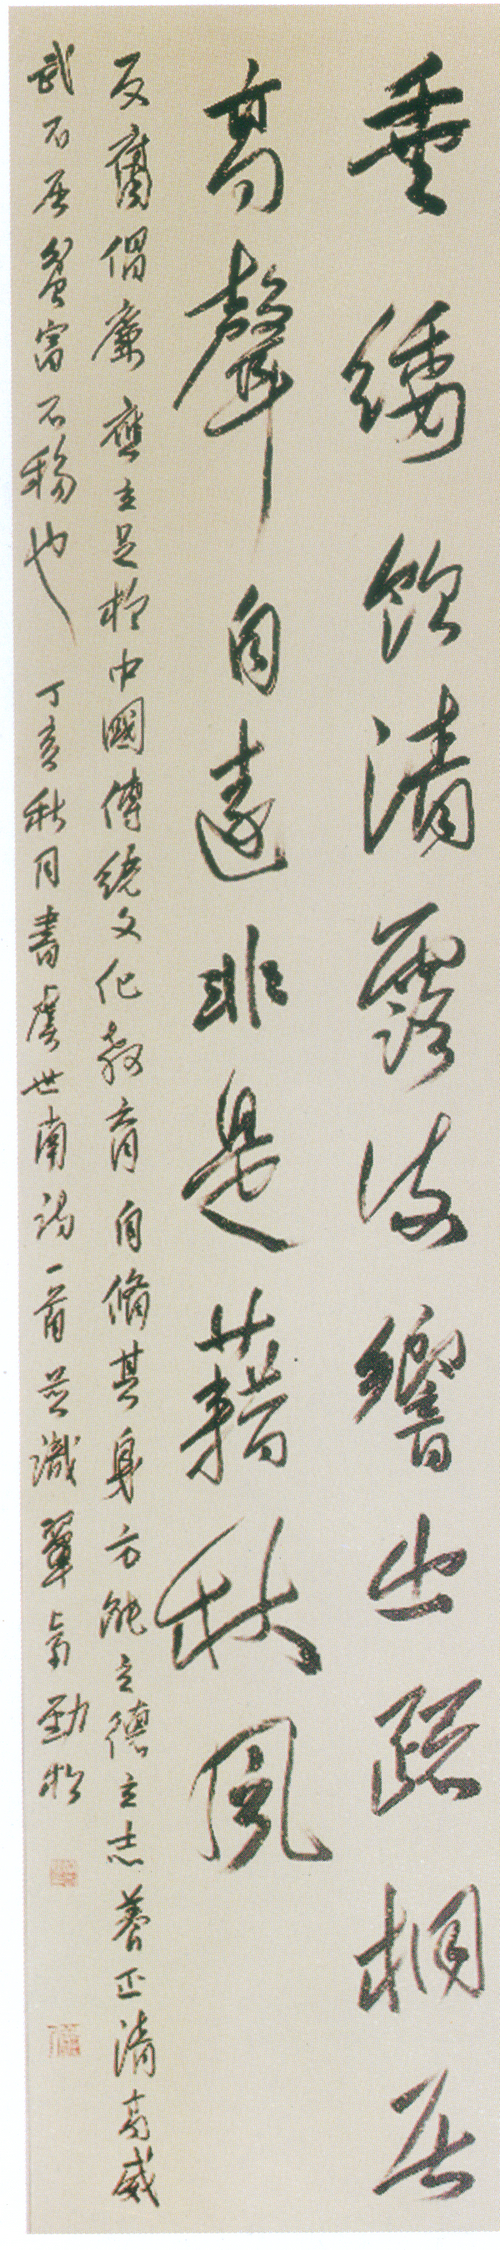 垂緌飲清露流響出疏桐居
高聲自遠非是藉秋風
反腐倡廉應立足於中國傳統文化教育自脩其身方能立德立志養正清高威
武不屈貧富不移也 丁亥秋月書虞世南詩一首並識 勁松